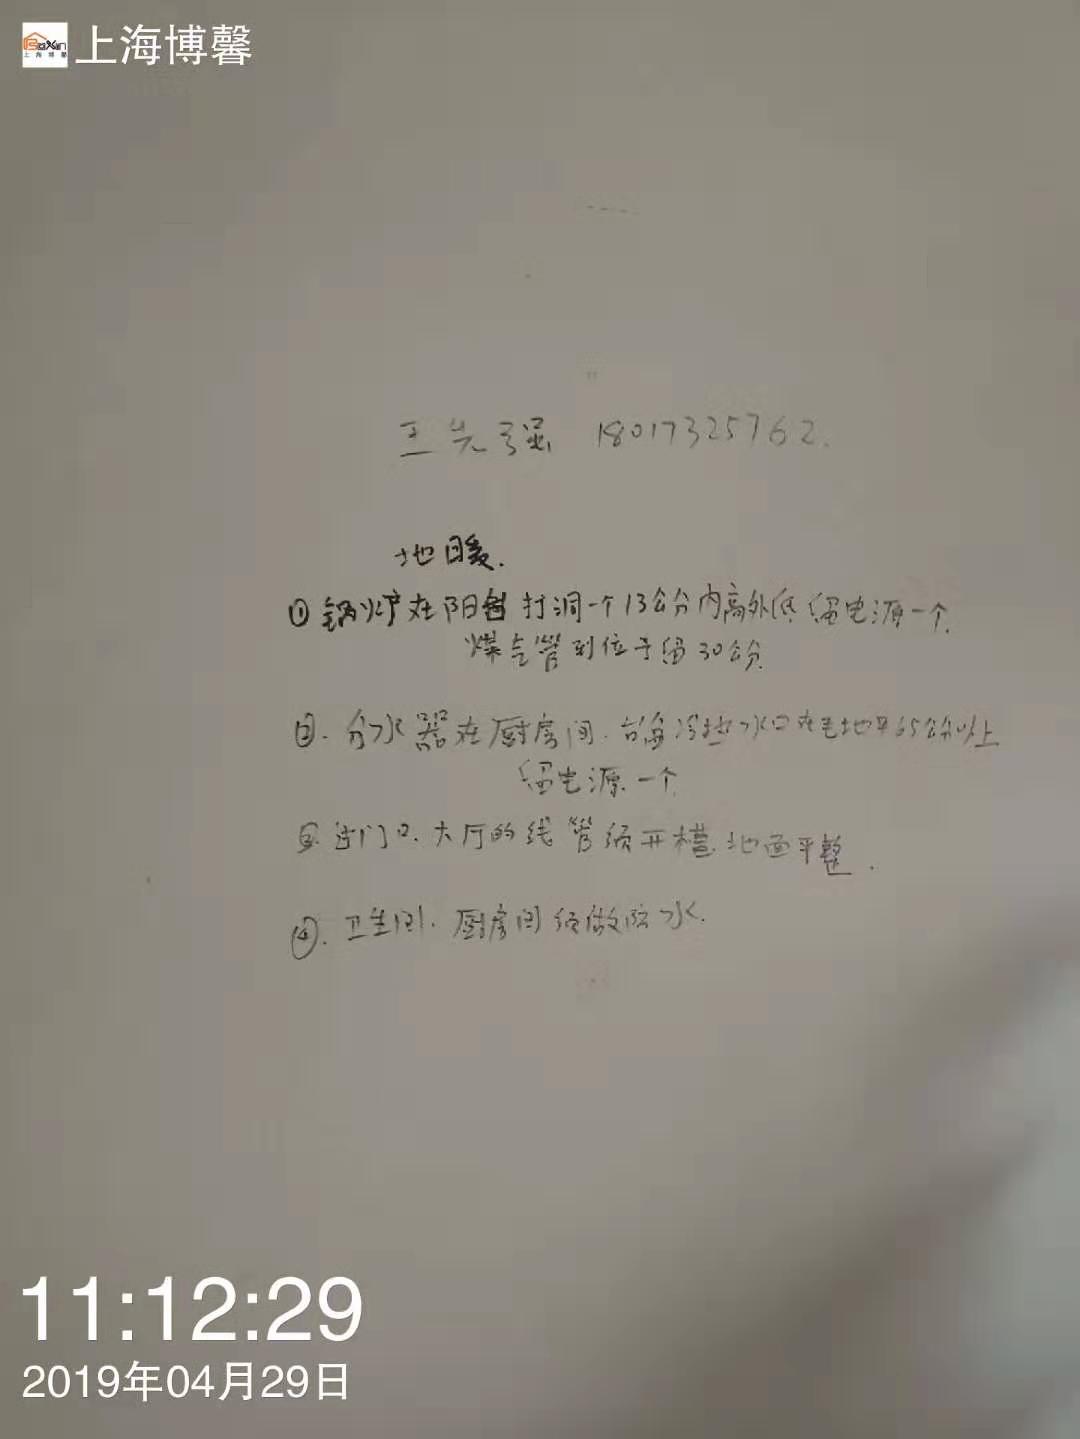 BoXin
上海博馨
上海博馨
王先强 18017325762.
地暖.
① 锅炉在阳台打洞一个13公分内高外低 留电源一个.
煤气管到位予留30公分
②. 分水器在厨房间. 冷热水口在毛地平65公分以上
留电源一个
③. 进门口. 大厅的线管须开槽. 地面平整.
④. 卫生间. 厨房间须做防水.
11:12:29
2019年04月29日